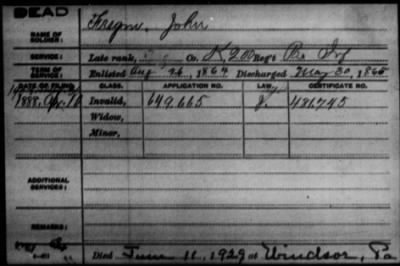 DEAD
NAME OF SOLDIER: Fregm, John
SERVICE: Late rank, Co. K 200 Reg't Pa Inf
TERM OF SERVICE: Enlisted Aug 26, 1864 Discharged May 30, 1865
DATE OF FILING CLASS. APPLICATION NO. LAW. CERTIFICATE NO.
1888, Apr. Invalid, 649.665 481.745
Widow,
Minor,
ADDITIONAL SERVICES:
REMARKS:
Died June 11, 1929 at Windsor, Pa